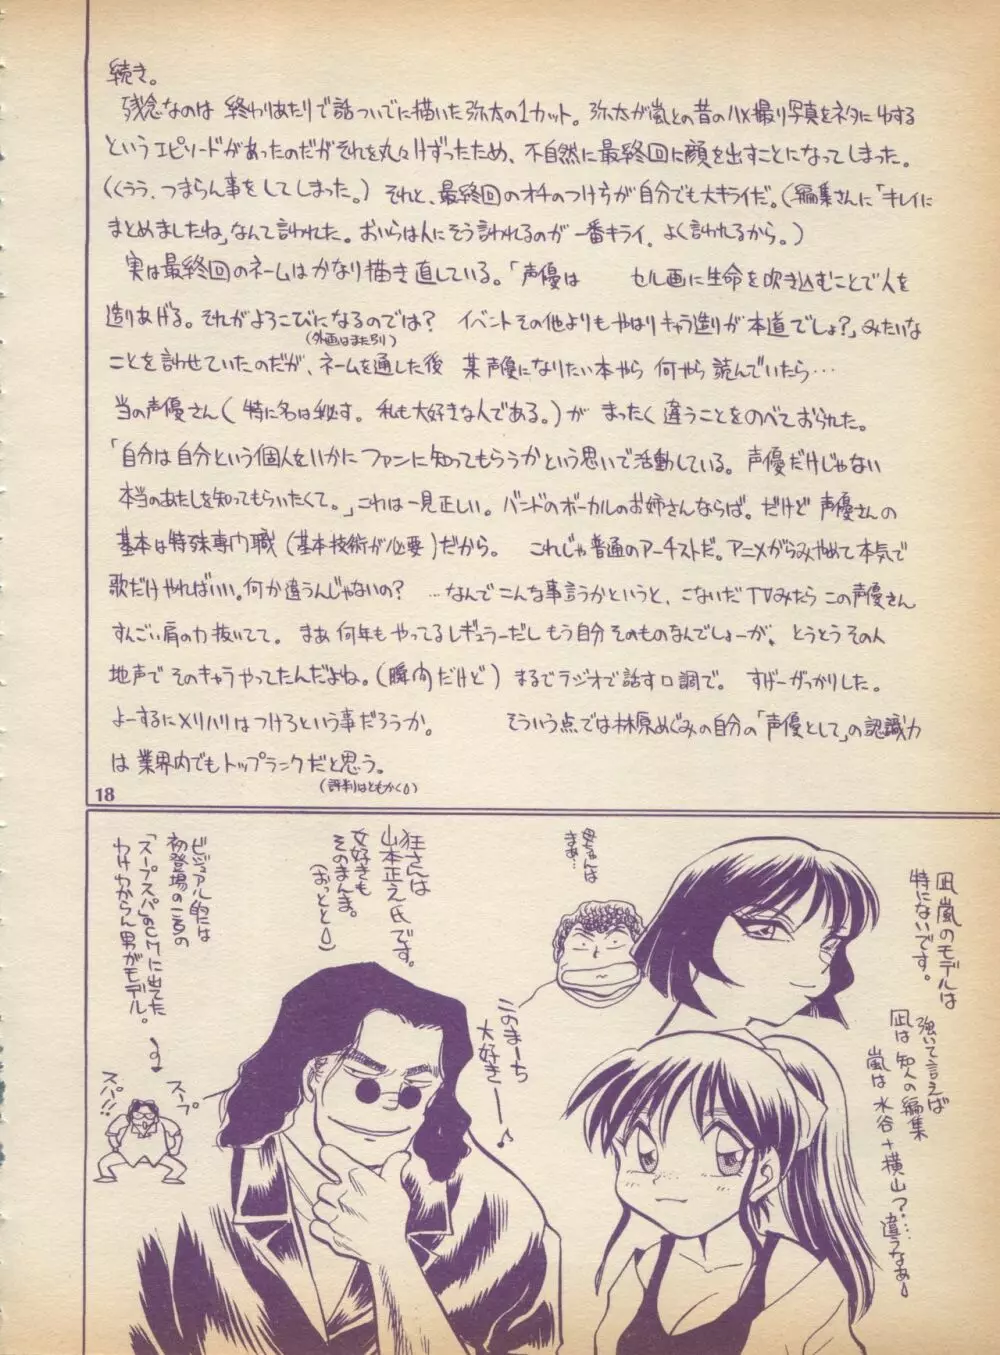 続き。
残念なのは 終わりあたりで話ついでに描いた弥太の1カット。弥太が嵐との昔のハメ撮り写真をネタにゆする
というエピソードがあったのだがそれを丸々けずったため、不自然に最終回に顔を出すことになってしまった。
(くうう、つまらん事をしてしまった。) それと、最終回のオチのつけ方が自分でも大キライだ。(編集さんに「キレイに
まとめましたね」なんて言われた。おいらは人にそう言われるのが一番キライ。よく言われるから。)
実は最終回のネームはかなり描き直している。「声優は セル画に生命を吹き込むことで人を
造りあげる。それがよろこびになるのでは? イベントその他よりもやはりキャラ造りが本道でしょ?」みたいな
(外画はまた別り)
ことを言わせていたのだが、ネームを通した後 某声優になりたい本やら 何やら 読んでいたら…
当の声優さん(特に名は秘す。私も大好きな人である。)が まったく違うことをのべておられた。
「自分は自分という個人をいかに ファンに知ってもらうかという思いで活動している。声優だけじゃない
本当のあたしを知ってもらいたくて。」これは一見正しい。バンドのボーカルのお姉さんならば。だけど 声優さんの
基本は特殊専門職(基本技術が必要)だから。 これじゃ普通のアーチストだ。アニメがらみやめて本気で
歌だけやればいい。何か違うんじゃないの? …なんでこんな事言うかというと、こないだTVみたら この声優さん
すんごい肩の力抜いてて。まあ 何年もやってるレギュラーだし もう自分そのものなんでしょーが、とうとうその人
地声で そのキャラやってたんだよね。(瞬間だけど) まるでラジオで話す口調で。 すげーがっかりした。
よーするにメリハリはつけろという事だろうか。 そういう点では林原めぐみの自分の「声優として」の認識力
は 業界内でもトップランクだと思う。
(評判はともかく)
18
凪嵐のモデルは
特にないです。
強いて言えば
凪は 知人の編集
嵐は 水谷+横山?…
違うなあ
母さんは
まあ…
狂さんは
山本正之氏です。
女好きも
そのまんま。
(おっとと)
このまーち
大好きーー♪
ビジュアル的には
初登場の一言の
「スープスパ」のCMに出てた
わけわからん男がモデル。
スープ
スパ!!